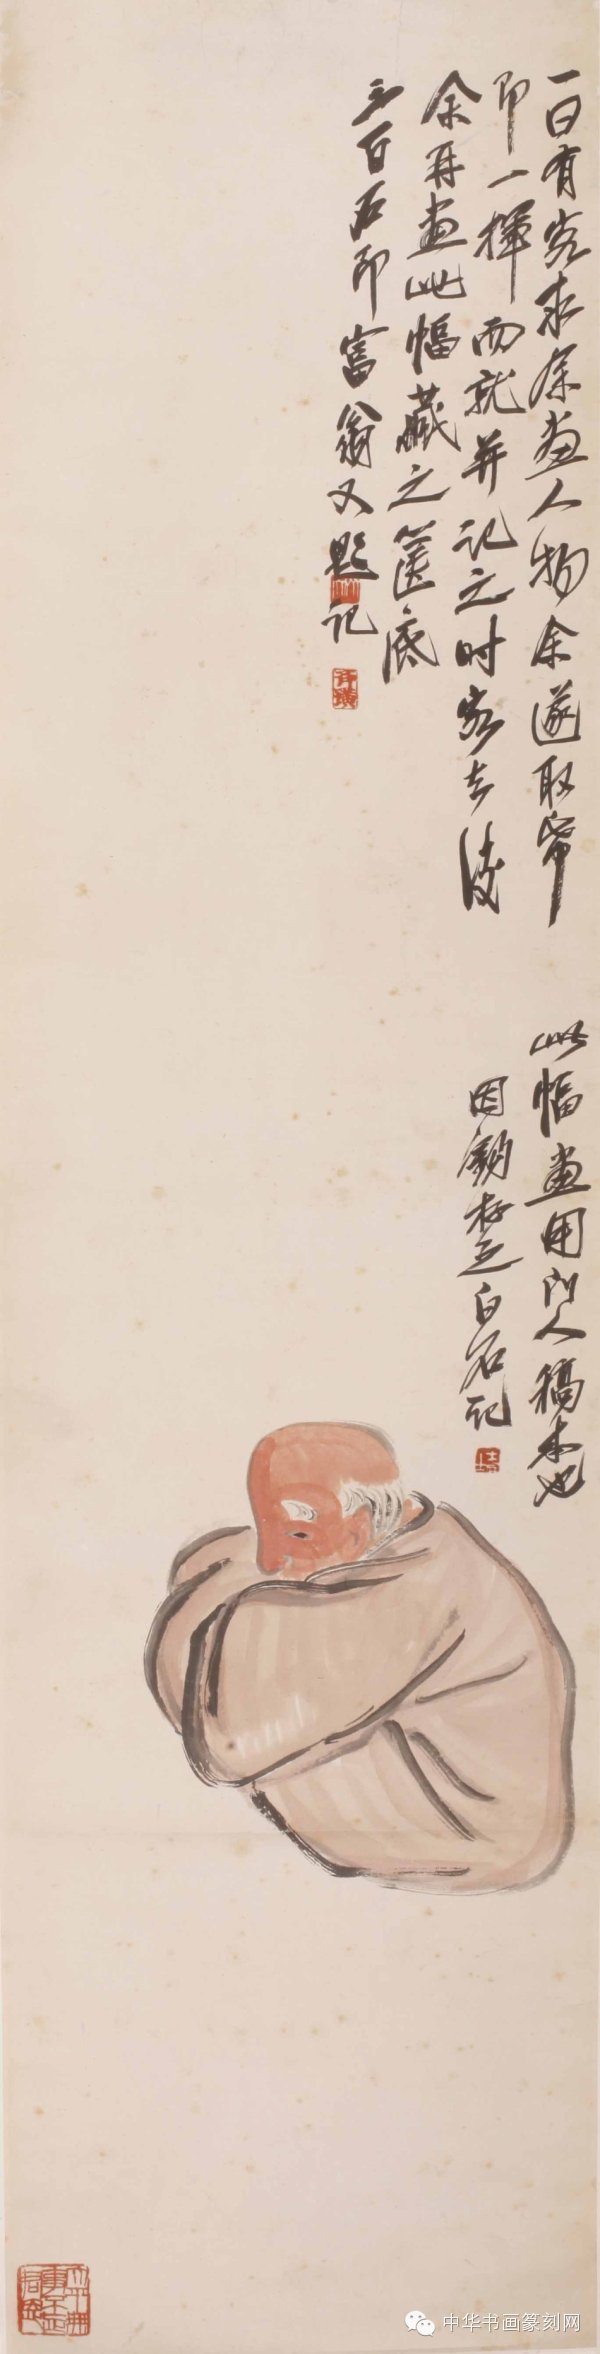 一日有客求余画人物余遂取笔
即一挥而就并记之时客去后
余再画此幅藏之箧底
三百石印富翁又题记
此幅画用门人稿本也
因钩存之白石记
中华书画篆刻网